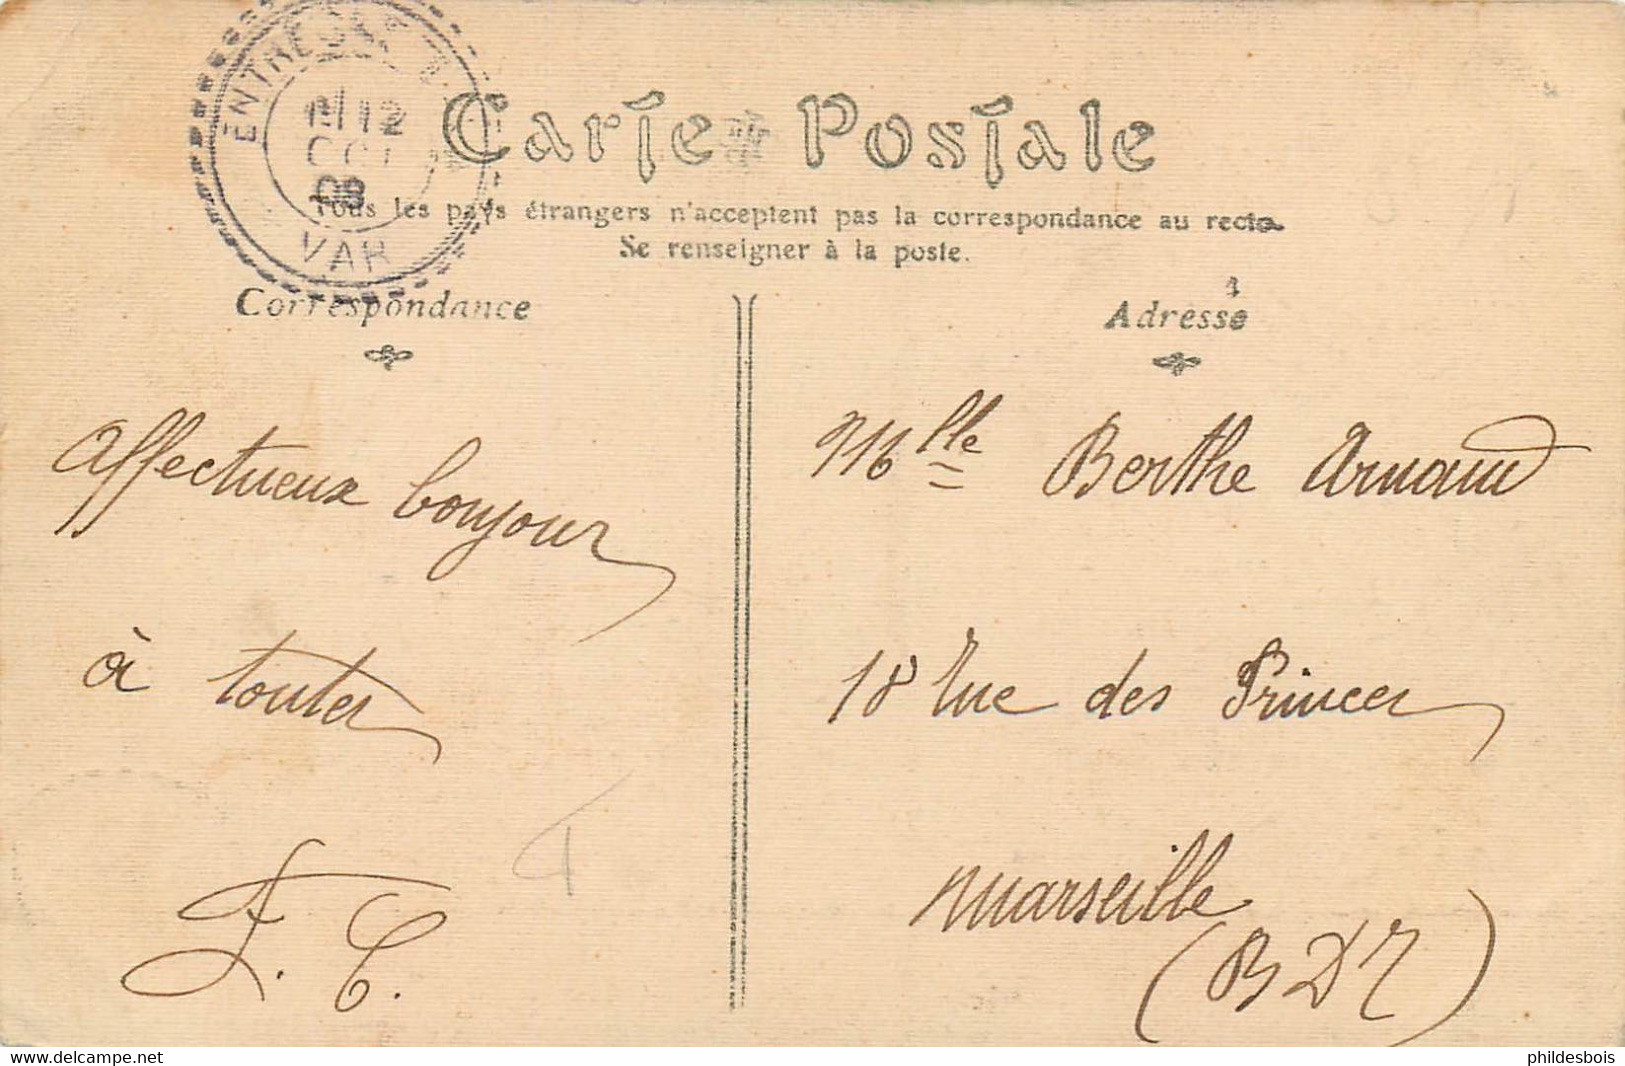 ENTRECAST
12
OCT
08
VAR
Carte Postale
Tous les pays étrangers n'acceptent pas la correspondance au recto.
Se renseigner à la poste.
Correspondance
Adresse
Affectueux bonjour
à toutes
F. C.
Mlle Berthe Arnaud
18 rue des Princes
Marseille
(BDR)
www.delcampe.net
phildesbois